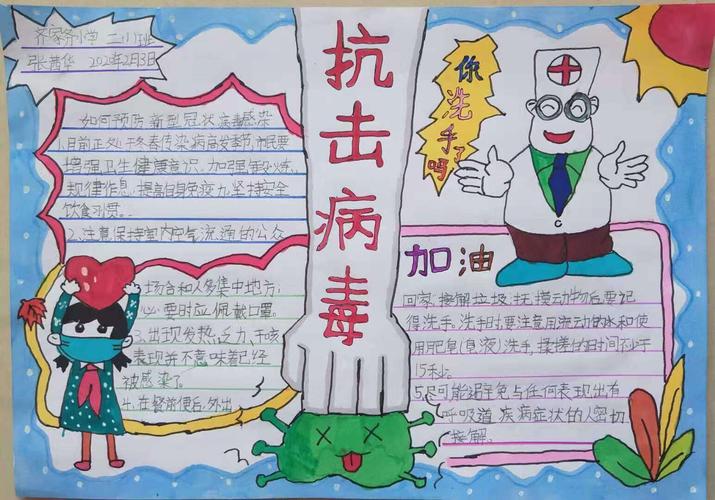 齐家务小学 二(1)班
张茜华 2020年2月3日
抗击病毒
你洗手了吗
如何预防新型冠状病毒感染
1.目前正处于冬春传染病高发季节,市民要
增强卫生健康意识,加强锻炼,
规律作息,提高自身免疫力,坚持安全
饮食习惯。
2.注意保持室内空气流通的公众
场合和人多集中地方,
必要时应佩戴口罩。
3.出现发热、乏力、干咳
表现并不意味着已经
被感染了。
4.在餐前便后、外出
加油
回家、接触垃圾、抚摸动物后要记
得洗手。洗手时,要注意用流动的水和使
用肥皂(皂液)洗手,揉搓的时间不少于
15秒。
5.尽可能避免与任何表现出有
呼吸道疾病症状的人密切
接触。